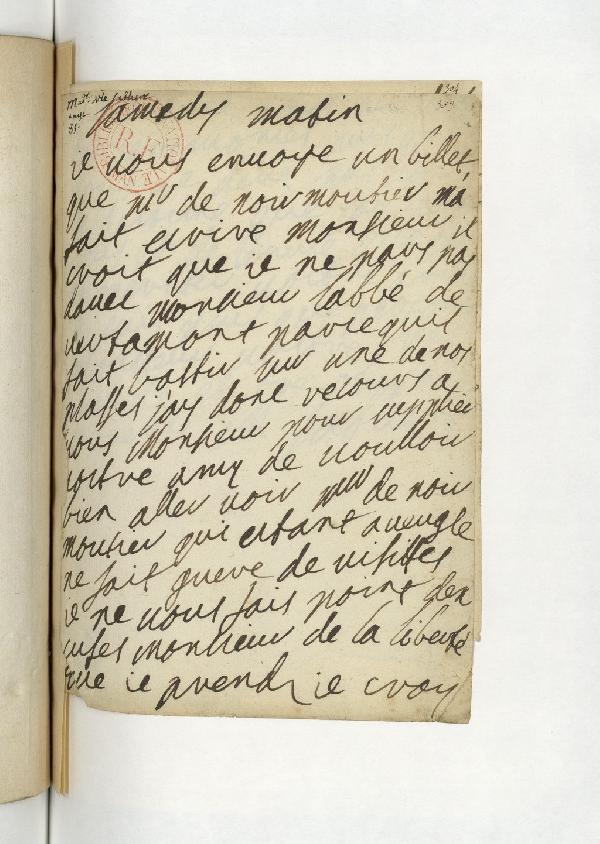 304
samedy matin
ie vous envoye un billet
que mr de noirmoutier ma
fait ecrire monsieur il
croit que ie ne pans pas
davec monsieur labbé de
vertamont parcequil
fait bastir sur une de nos
plasses j'ay donc recours a
vous monsieur pour supplier
vostre amy de voulloir
bien aller voir mr de noir
moutier qui estant aveugle
ne fait guere de visittes
ie ne vous fais point dex
cuses monsieur de la liberté
que ie prends ie croy